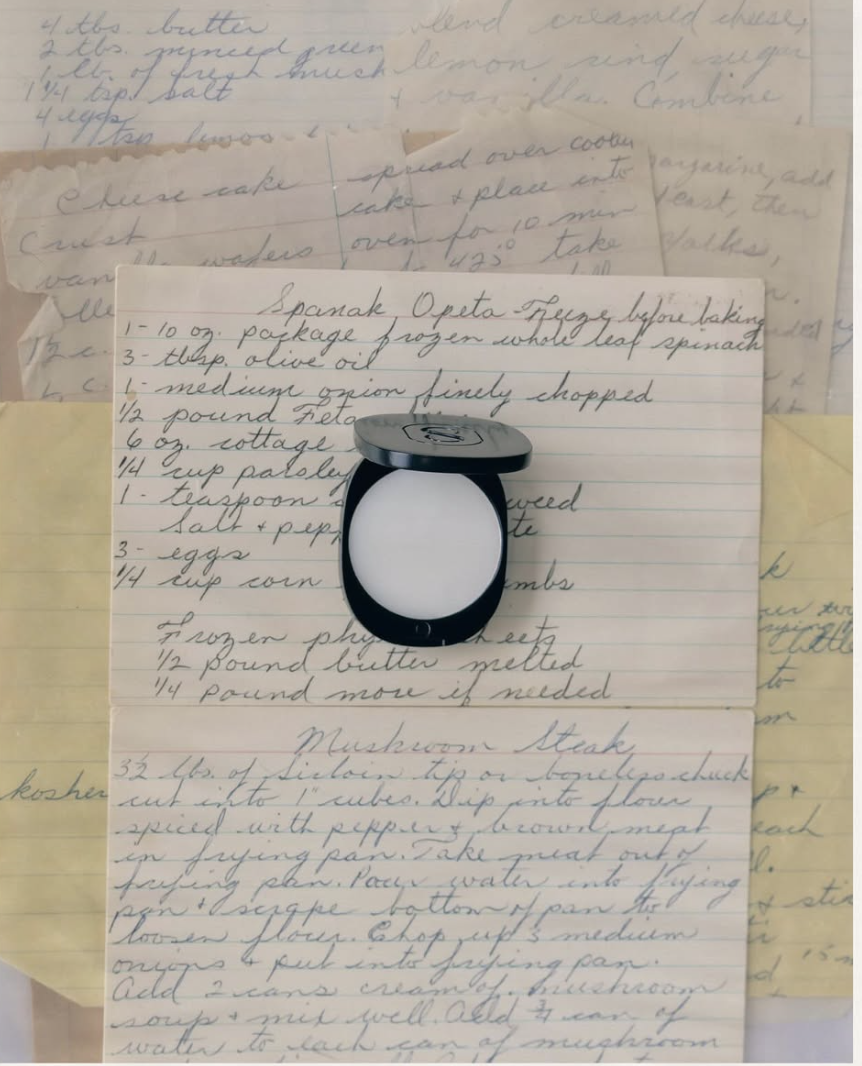 4 tbs. butter
2 tbs. minced green
1 lb. of fresh mush
1 1/4 tsp. salt
4 eggs
1 tsp
blend creamed cheese,
lemon rind sugar
+ vanilla. Combine
Cheese cake
Crust
vanilla wafers
spread over
cake + place into
oven for 10 min
425° take
margarine, add
yeast, then
yolks,
Spanak Opeta - Freeze before baking
1 - 10 oz. package frozen whole leaf spinach
3 - tbsp. olive oil
1 - medium onion finely chopped
1/2 pound Feta
6 oz. cottage
1/4 cup parsley
1 - teaspoon weed
Salt + pepp te
3 - eggs
1/4 cup corn mbs
Frozen phy sheets
1/2 pound butter melted
1/4 pound more if needed
Mushroom Steak
3 1/2 lbs. of sirloin tip or boneless chuck
cut into 1" cubes. Dip into flour
spiced with pepper & brown meat
in frying pan. Take meat out of
frying pan. Pour water into frying
pan + scrape bottom of pan to
loosen flour. Chop up 3 medium
onions + put into frying pan.
Add 2 cans cream of mushroom
soup + mix well. Add 3/4 can of
water to each can of mushroom
kosher
k
to
p +
each
15 m